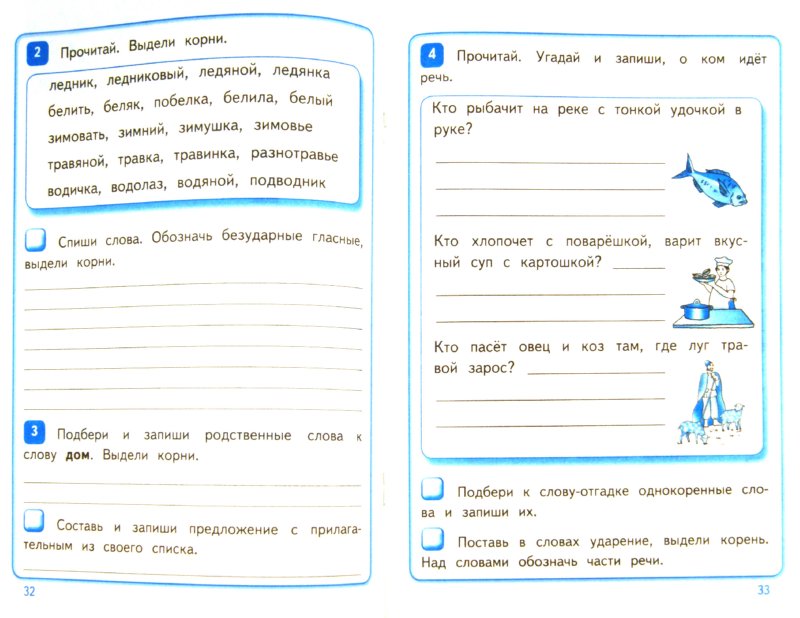 2 Прочитай. Выдели корни.
ледник, ледниковый, ледяной, ледянка
белить, беляк, побелка, белила, белый
зимовать, зимний, зимушка, зимовье
травяной, травка, травинка, разнотравье
водичка, водолаз, водяной, подводник
Спиши слова. Обозначь безударные гласные,
выдели корни.
3 Подбери и запиши родственные слова к
слову дом. Выдели корни.
Составь и запиши предложение с прилага-
тельным из своего списка.
32
4 Прочитай. Угадай и запиши, о ком идёт
речь.
Кто рыбачит на реке с тонкой удочкой в
руке?
Кто хлопочет с поварёшкой, варит вкус-
ный суп с картошкой?
Кто пасёт овец и коз там, где луг тра-
вой зарос?
Подбери к слову-отгадке однокоренные сло-
ва и запиши их.
Поставь в словах ударение, выдели корень.
Над словами обозначь части речи.
33